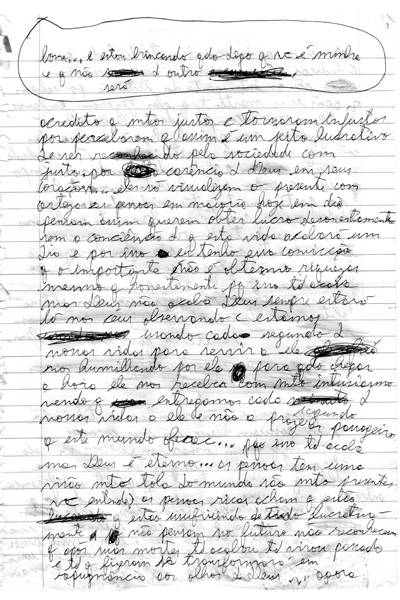 boca... e estou brincando qdo digo q vc é minha
e q não será d outro
acredito q mtos justos c tornaram injustos
por perceberem q assim é um jeito lucrativo
d ser reconhecido pela sociedade com
justo, por carência d Deus em seus
corações... eles só visualizam o presente com
certeza as pessoas em maioria hoje em dia
pensam assim querem obter lucro desonestamente
sem a consciência d q esta vida acabará um
dia e por isso eu tenho essa convicção
q o importante não é obtermos riquezas
mesmo q honestamente pq isso td acaba
mas Deus não acaba Deus sempre estará
lá nos céus observando c estamos
usando cada segundo d
nossas vidas para servir a ele
nos humilhando por ele para qdo chegar
a hora ele nos receba com mto entusiasmo
vendo q entregamos cada segundo d
nossas vidas a ele e não a prazeres passageiros
q este mundo oferece... pq isso td acaba
mas Deus é eterno... as pessoas tem uma
visão mto tola do mundo são mto presentes
(vc entende) as pessoas ricas acham q estão
q estão usufruindo de tudo lucrativa-
mente, e não pensam no futuro não reconhecem
q após suas mortes td acabou td virou passado
e td q fizeram se transformará em
repugnância aos olhos d Deus ... agora